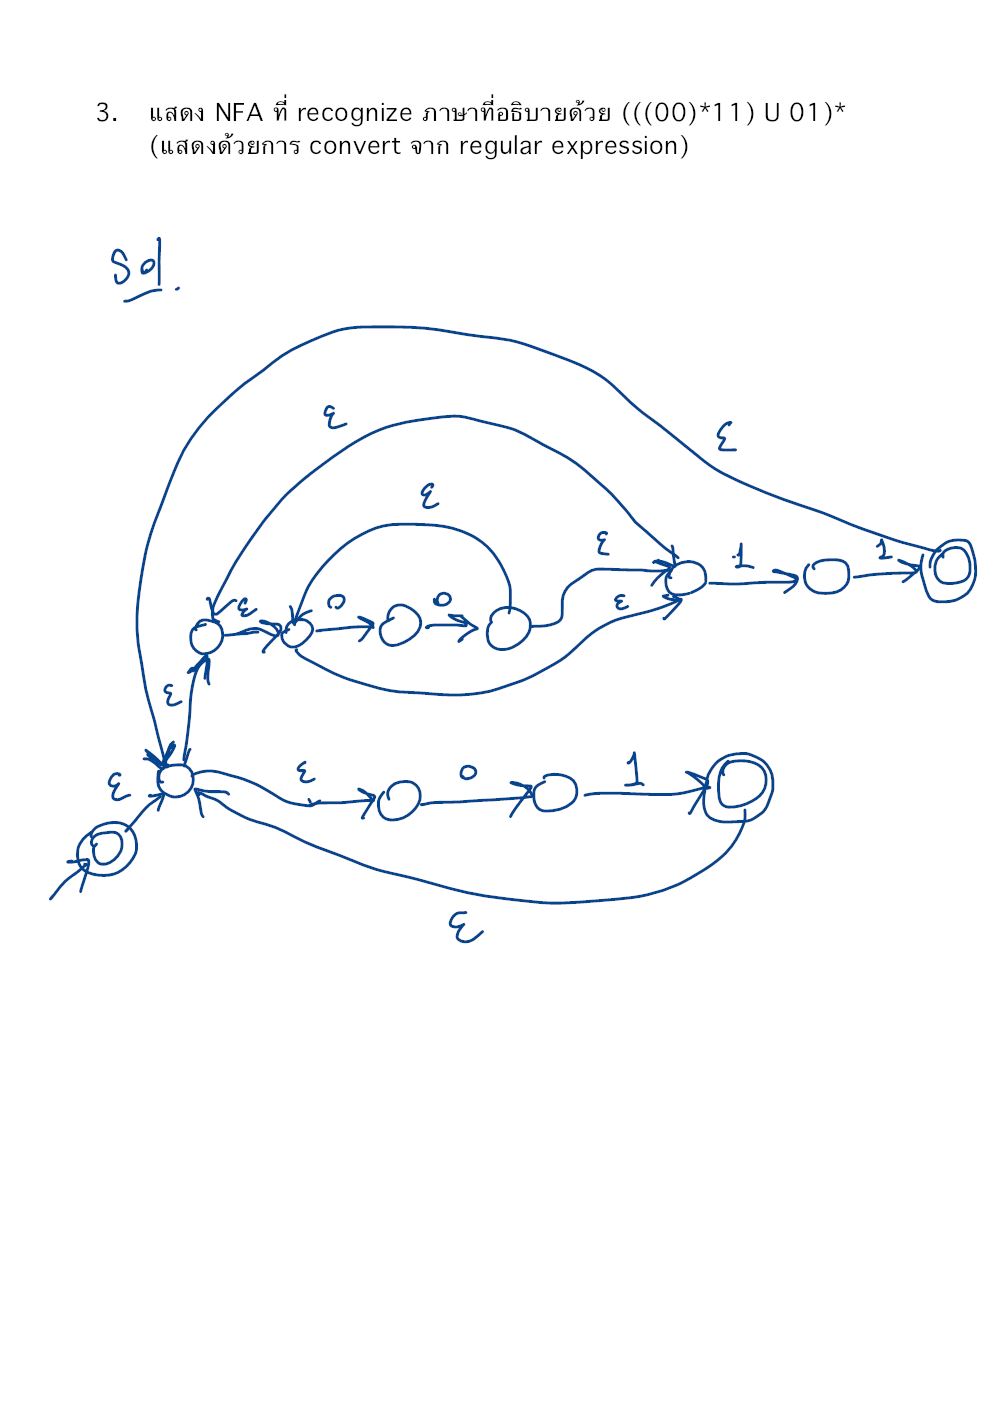 3. แสดง NFA ที่ recognize ภาษาที่อธิบายด้วย (((00)*11) U 01)*
(แสดงด้วยการ convert จาก regular expression)
Sol.
ε
ε
ε
ε
1
1
ε
0
0
ε
ε
ε
ε
0
1
ε